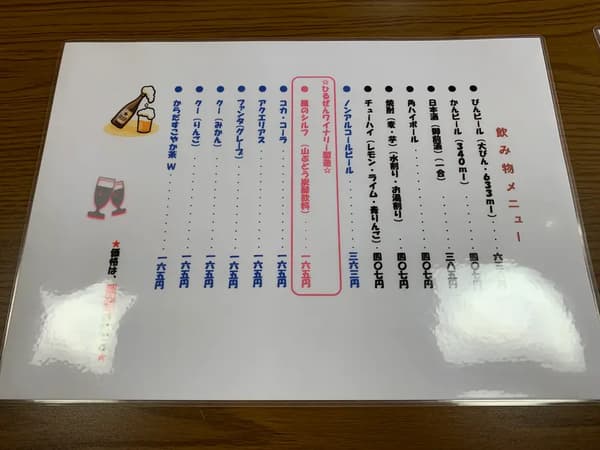 飲み物メニュー
●びんビール（大びん・633ml）・・・六
●かんビール（340ml）・・・・四〇
●日本酒（御前酒）（一合）・・・・三八五円
●角ハイボール・・・・・・四〇七円
●焼酎（麦・芋）（水割り・お湯割り）・・・四〇七円
●チューハイ（レモン・ライム・青りんご）・四〇七円
●ノンアルコールビール・・・・・・三六三円
☆ひるぜんワイナリー製造☆
●風のシルフ（山ぶどう発酵飲料）・・・・一六五円
●コカ・コーラ・・・・・・一六五円
●アクエリアス・・・・・・一六五円
●ファンタ（グレープ）・・・・・・一六五円
●クー（みかん）・・・・・・一六五円
●クー（りんご）・・・・・・一六五円
●からだすこやか茶W・・・・・・一六五円
★価格は、